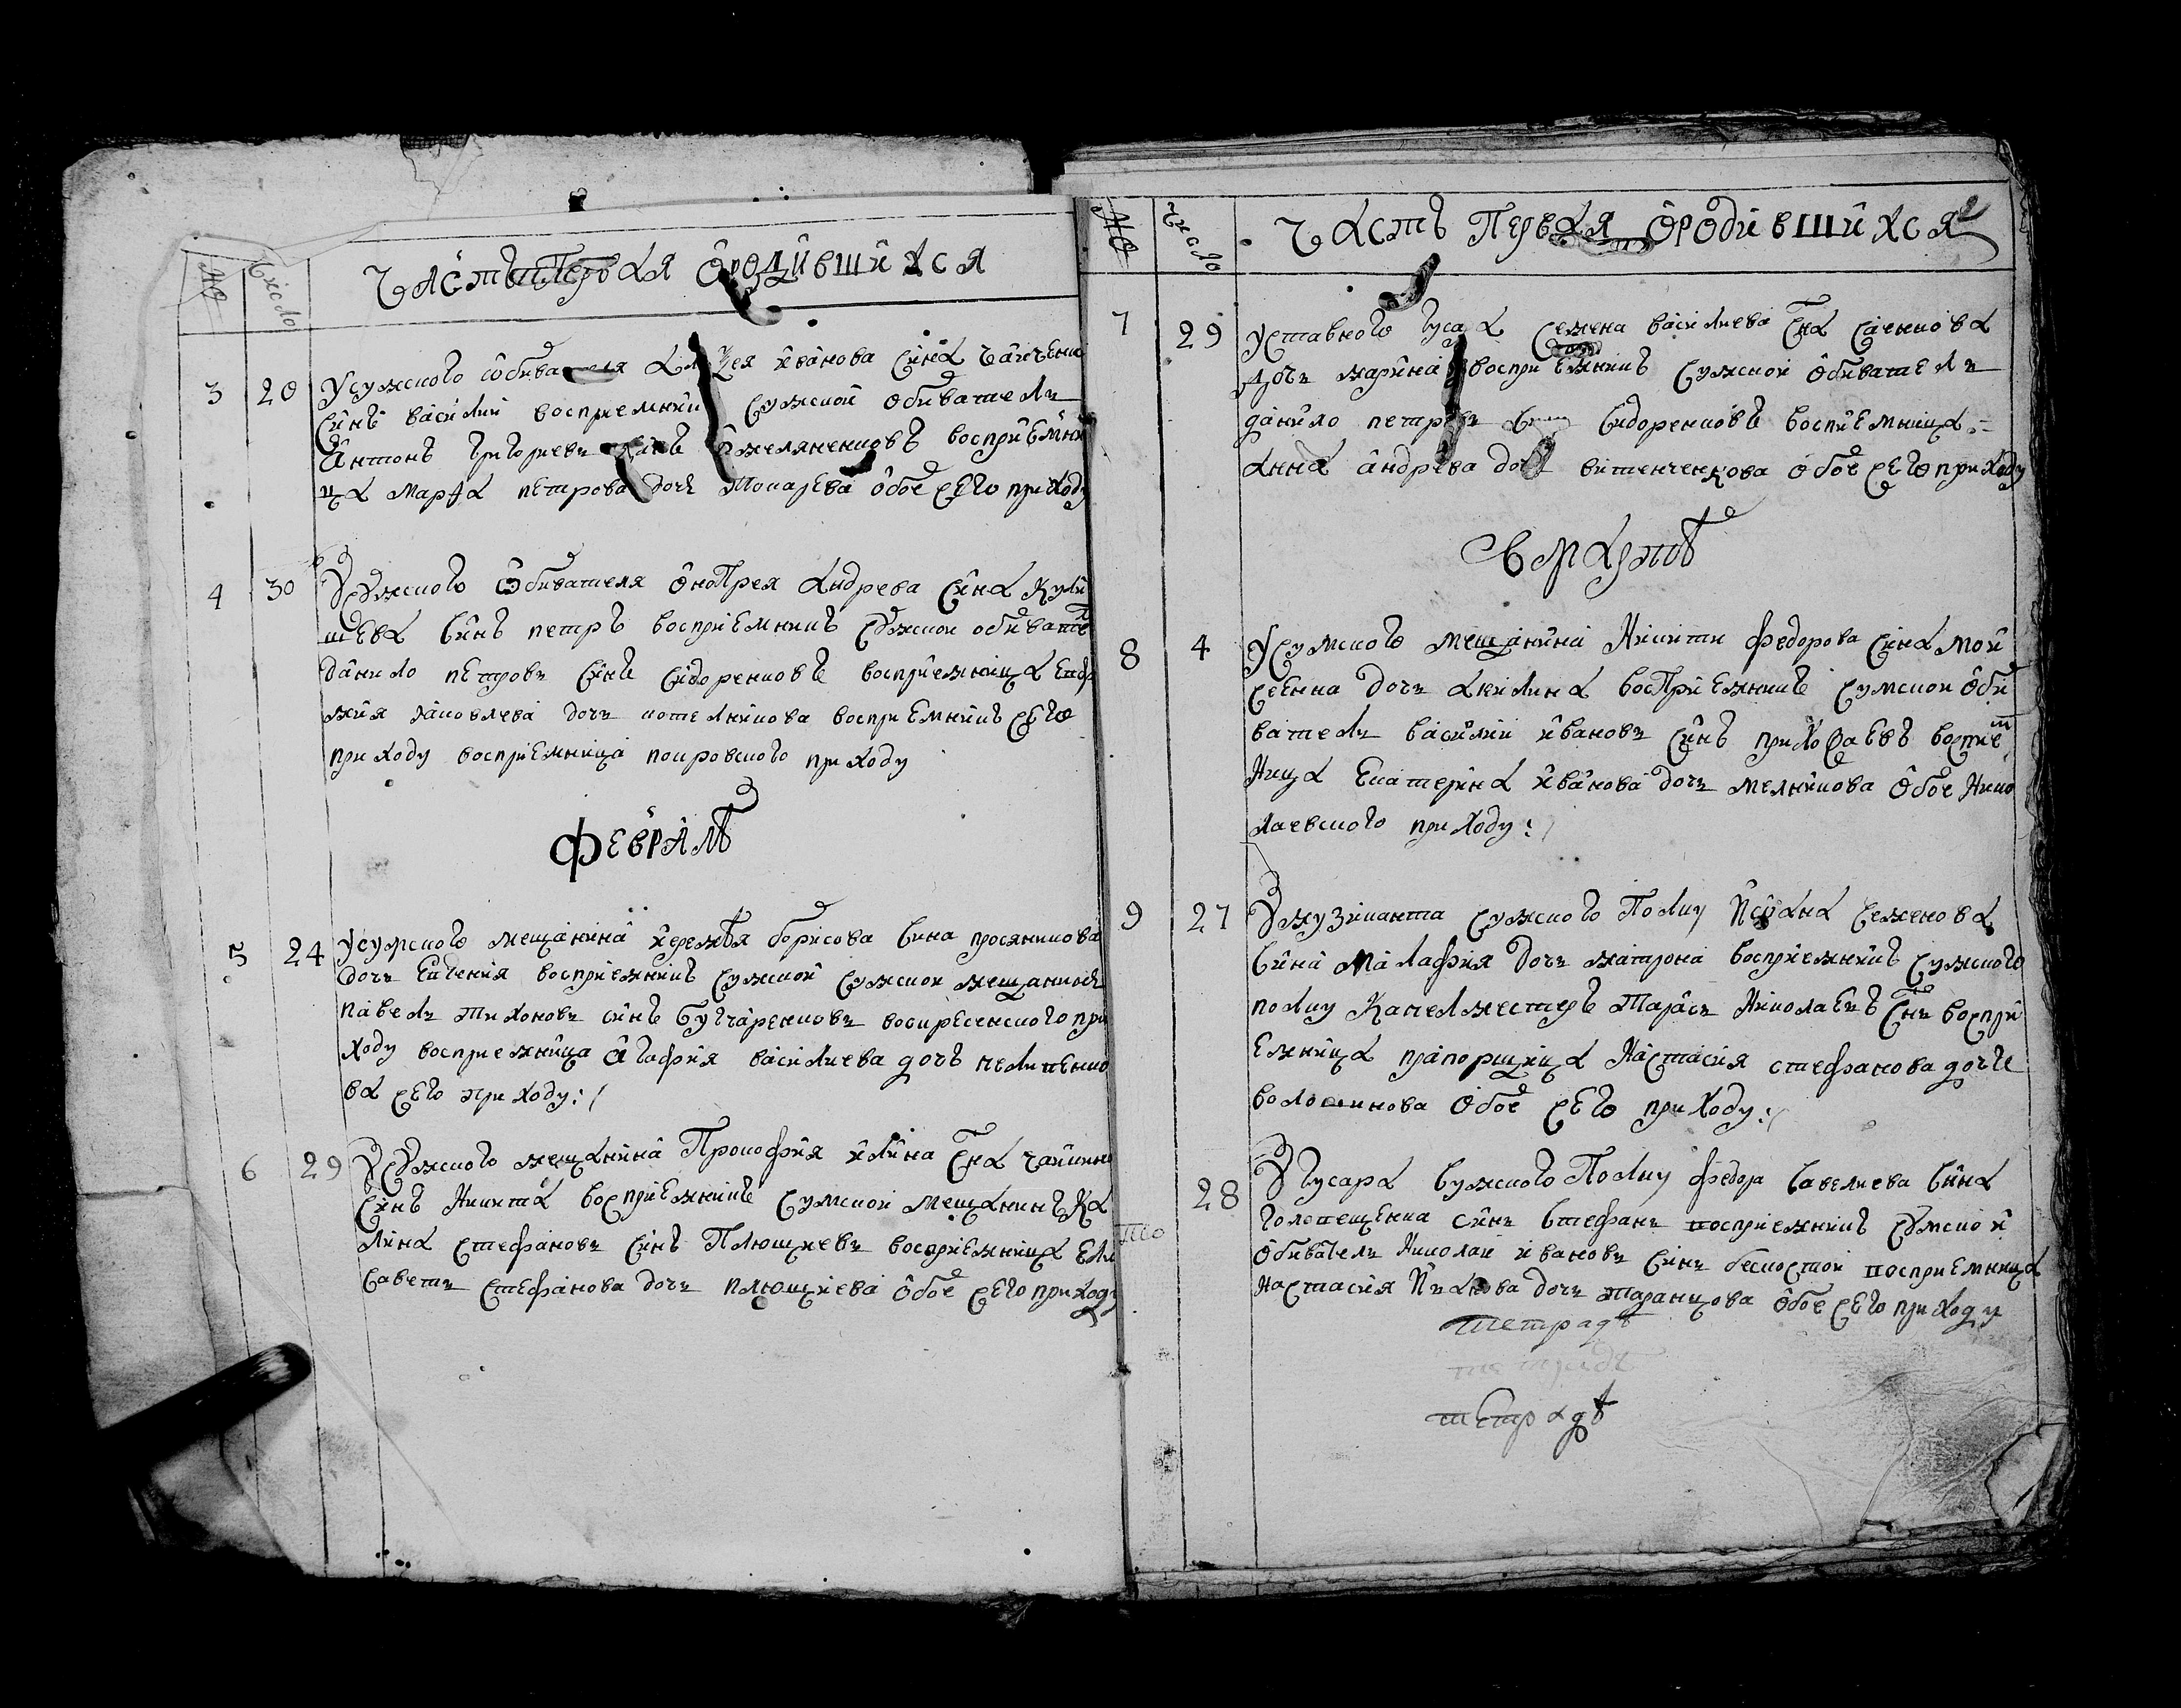 № Число Частъ первая ѡродившихся
3 20 У сумского ѡбивателя Иванова сина
синъ василий восприемникъ сумской обиватель
Антонъ григориевъ синъ восприемни
ца марѳа петрова дочь обое сего приходу
4 30 У сумского обивателя онопрея андрева сина кули
шева синъ петръ восприемникъ сумской обивате
данило петровъ синъ сидоренковъ восприемница
яковлева дочъ котелникова восприемникъ сего
приходу восприемница покровского приходу
Февралѣ
5 24 У сумского мещанина иеремѣя борисова сина просяникова
дочъ евгения восприемникъ сумской сумской мещанинъ
павелъ тихоновъ синъ воскресенского при
ходу восприемница агафия василиева дочъ
ва сего приходу:
6 29 У сумского мещанина прокофия илина сна
синъ никита восприемникъ сумской мещанинъ ка
лина стефановъ синъ плющиевъ восприемница ели
саветъ стефанова дочъ плющиева обое сего приход
№ Число Частъ первая ѡродившихся
7 29 Уставного гусара семена василиева сна саенкова
дочъ марина восприемникъ сумской обиватель
данило петровъ синъ сидоренковъ воспиемница
анна андрева дочъ обое сего приходу
В мартѣ
8 4 У сумского мещанина никити федорова сина мои
сеенка дочъ акилина восприемникъ сумской оби
ватель василий ивановъ синъ восприем
ница екатерина иванова дочъ мелникова обое нико
лаевского приходу:
9 27 У музиканта сумского полку семенова
сина малафия дочъ матрона восприемникъ сумского
полку капелместеръ тарасъ николаевъ снъ воспри
емница прапорщица настасия стефанова дочъ
волошинова обое сего приходу:
28 У гусара сумского полку федора савелиева сина
голопещенка синъ стефанъ восприемникъ сумской
обиватель николай ивановъ синъ восприемница
настасия дочъ таранцова обое сего приходу
тетрадѣ
тетрадѣ